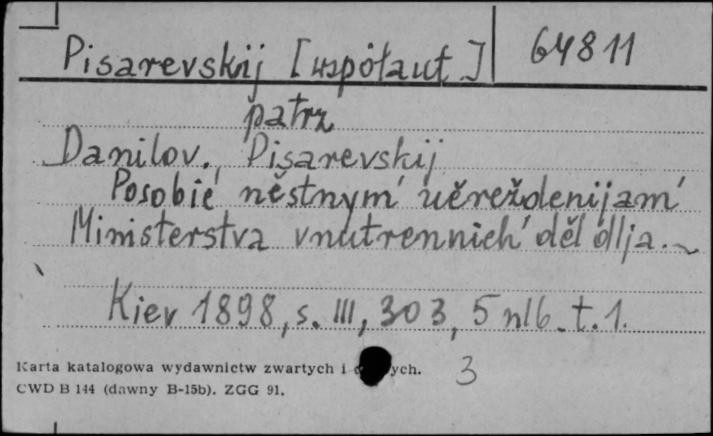 Pisarevskij [współaut.] 64811
patrz
Danilov., Pisarevskij
Posobie městnym' učreždenijam'
Ministerstva vnutrennich' děl dlja.~
Kiev 1898, s. III, 303, 5 nlb. t. 1.
Karta katalogowa wydawnictw zwartych i ych. 3
CWD B 144 (dawny B-15b). ZGG 91.